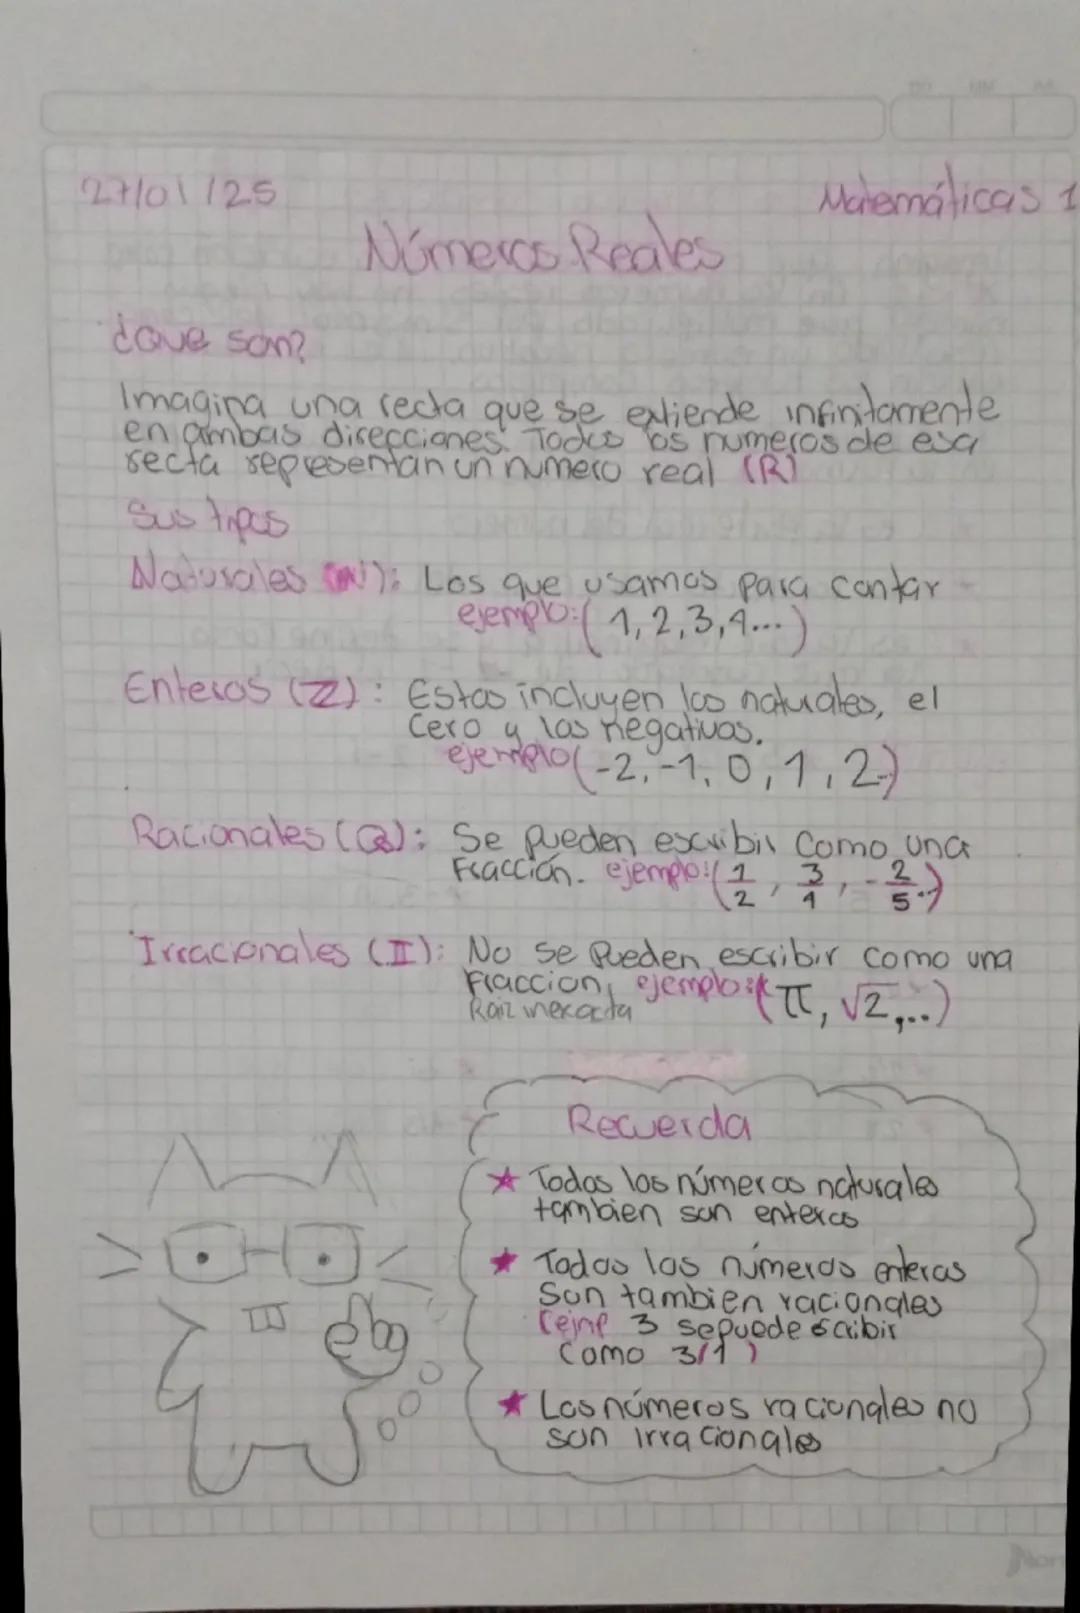 27/01/25
Matemáticas 1
Números Reales
¿Que son?
Imagina una recta que se extiende infinitamente
en ambas direcciones. Todos los numeros de esa
recta representan un numero real (R)
Sus tipos
Naturales (N): Los que usamos para contar
ejemplo: (1,2,3,4...)
Enteros (Z): Estos incluyen los naturales, el
Cero y los negativos.
ejemplo (-2,-1,0,1,2..)
Racionales (Q): Se pueden escribir Como una
Fracción. ejemplo: (1/2, 3/4, -2/5..)
Irracionales (II): No se Pueden escribir Como una
Fraccion, ejemplo: (π, √2,...)
Raiz inexacta
Recuerda
★ Todos los números naturales
tambien son enteros
★ Todos los números enteros
Son tambien racionales
(ejmp 3 sepuede scribir
Como 3/1)
★ Los números racionales no
son irracionales